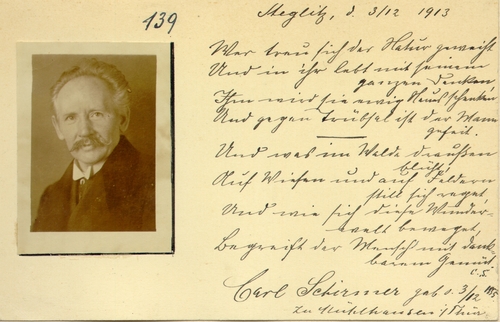 139
Steglitz, d. 3/12 1913
Wer treu sich der Natur geweiht
Und in ihr lebt mit seinem
ganzen Denken
Ihm wird sie ewig schenken
Und gegen Trübsal ist der Mann
gefeit.
Und was im Walde draußen
blüht,
Auf Wiesen und auf Feldern
still sich reget,
Und wie sich diese Wunder-
welt beweget,
Begreift der Mensch mit dank-
barem Gemüt.
C. S.
Carl Schirmer geb. d. 3/12
zu Mühlhausen i/Thür.